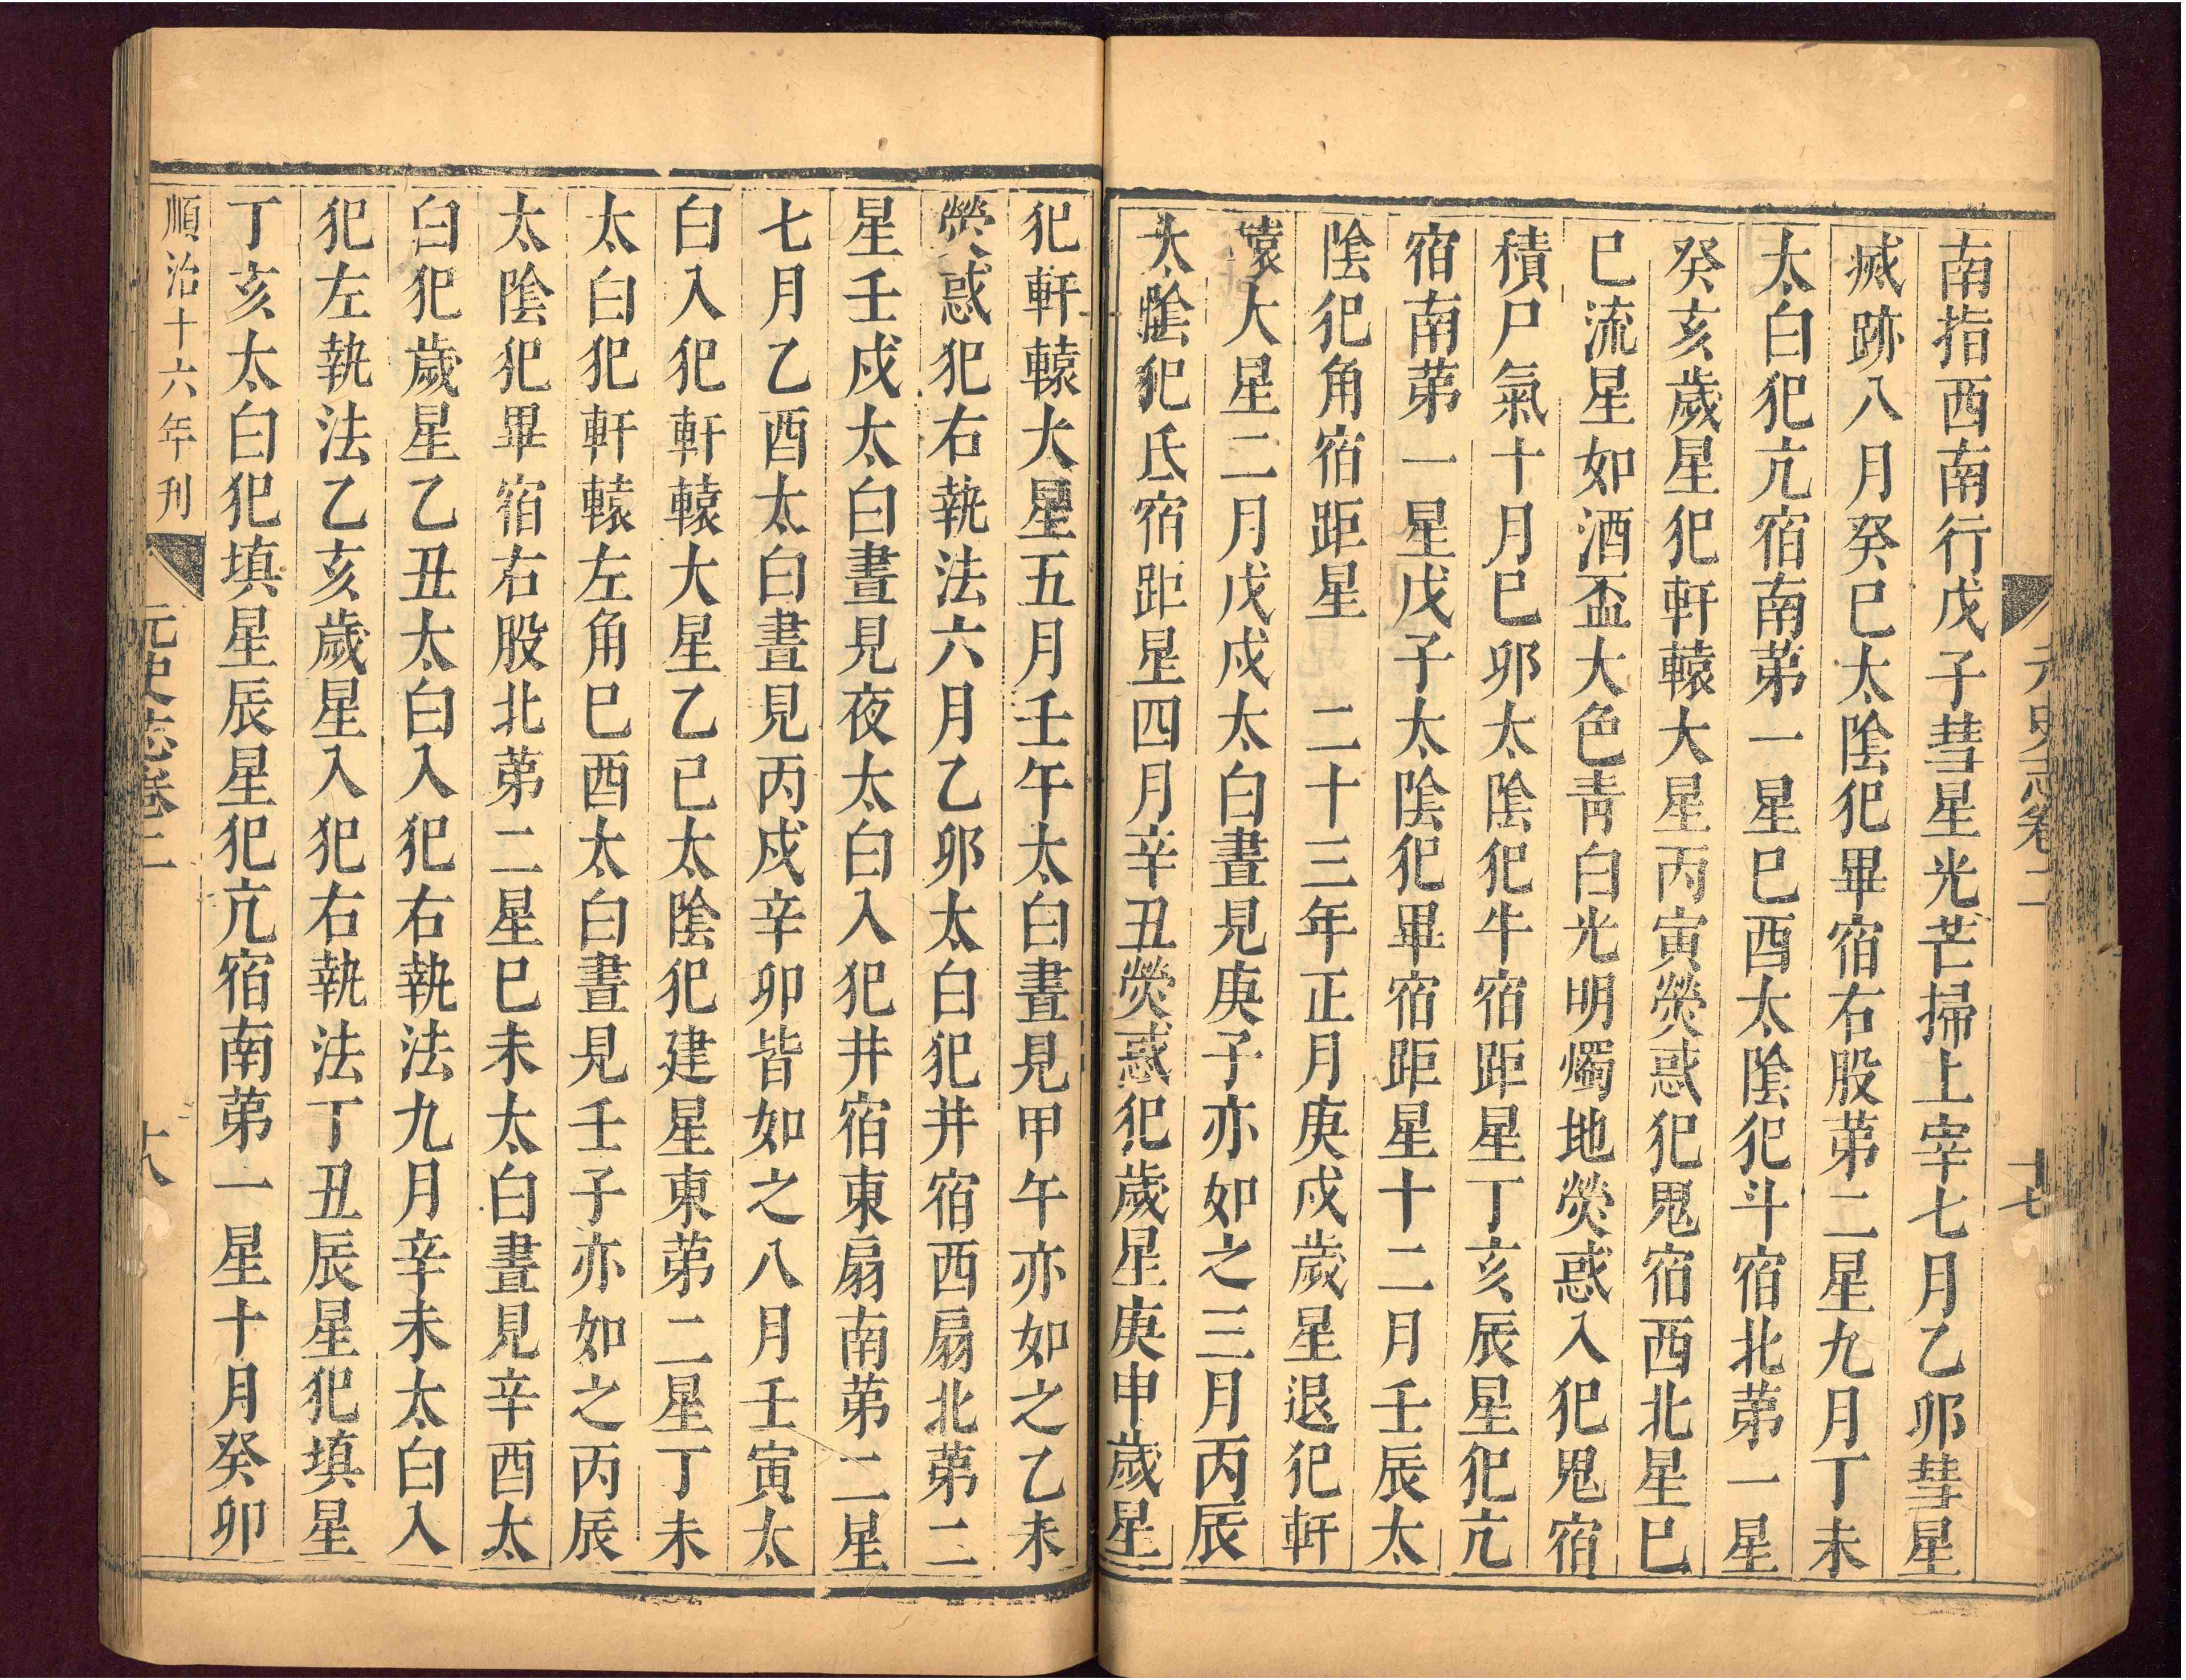 元史志卷二
十七
南指西南行戊子彗星光芒掃上宰七月乙卯彗星
滅跡八月癸巳太陰犯畢宿右股第二星九月丁未
太白犯亢宿南第一星巳酉太陰犯斗宿北第一星
癸亥歲星犯軒轅大星丙寅熒惑犯鬼宿西北星巳
巳流星如酒盃大色青白光明燭地熒惑入犯鬼宿
積尸氣十月巳卯太陰犯牛宿距星丁亥辰星犯亢
宿南第一星戊子太陰犯畢宿距星十二月壬辰太
陰犯角宿距星 二十三年正月庚戌歲星退犯軒
轅大星二月戊戌太白晝見庚子亦如之三月丙辰
太陰犯氐宿距星四月辛丑熒惑犯歲星庚申歲星
犯軒轅大星五月壬午太白晝見甲午亦如之乙未
熒惑犯右執法六月乙卯太白犯井宿西扇北第二
星壬戌太白晝見夜太白入犯井宿東扇南第二星
七月乙酉太白晝見丙戌辛卯皆如之八月壬寅太
白入犯軒轅大星乙巳太陰犯建星東第二星丁未
太白犯軒轅左角巳酉太白晝見壬子亦如之丙辰
太陰犯畢宿右股北第二星巳未太白晝見辛酉太
白犯歲星乙丑太白入犯右執法九月辛未太白入
犯左執法乙亥歲星入犯右執法丁丑辰星犯填星
丁亥太白犯填星辰星犯亢宿南第一星十月癸卯
順治十六年刊
元史志卷二
十八